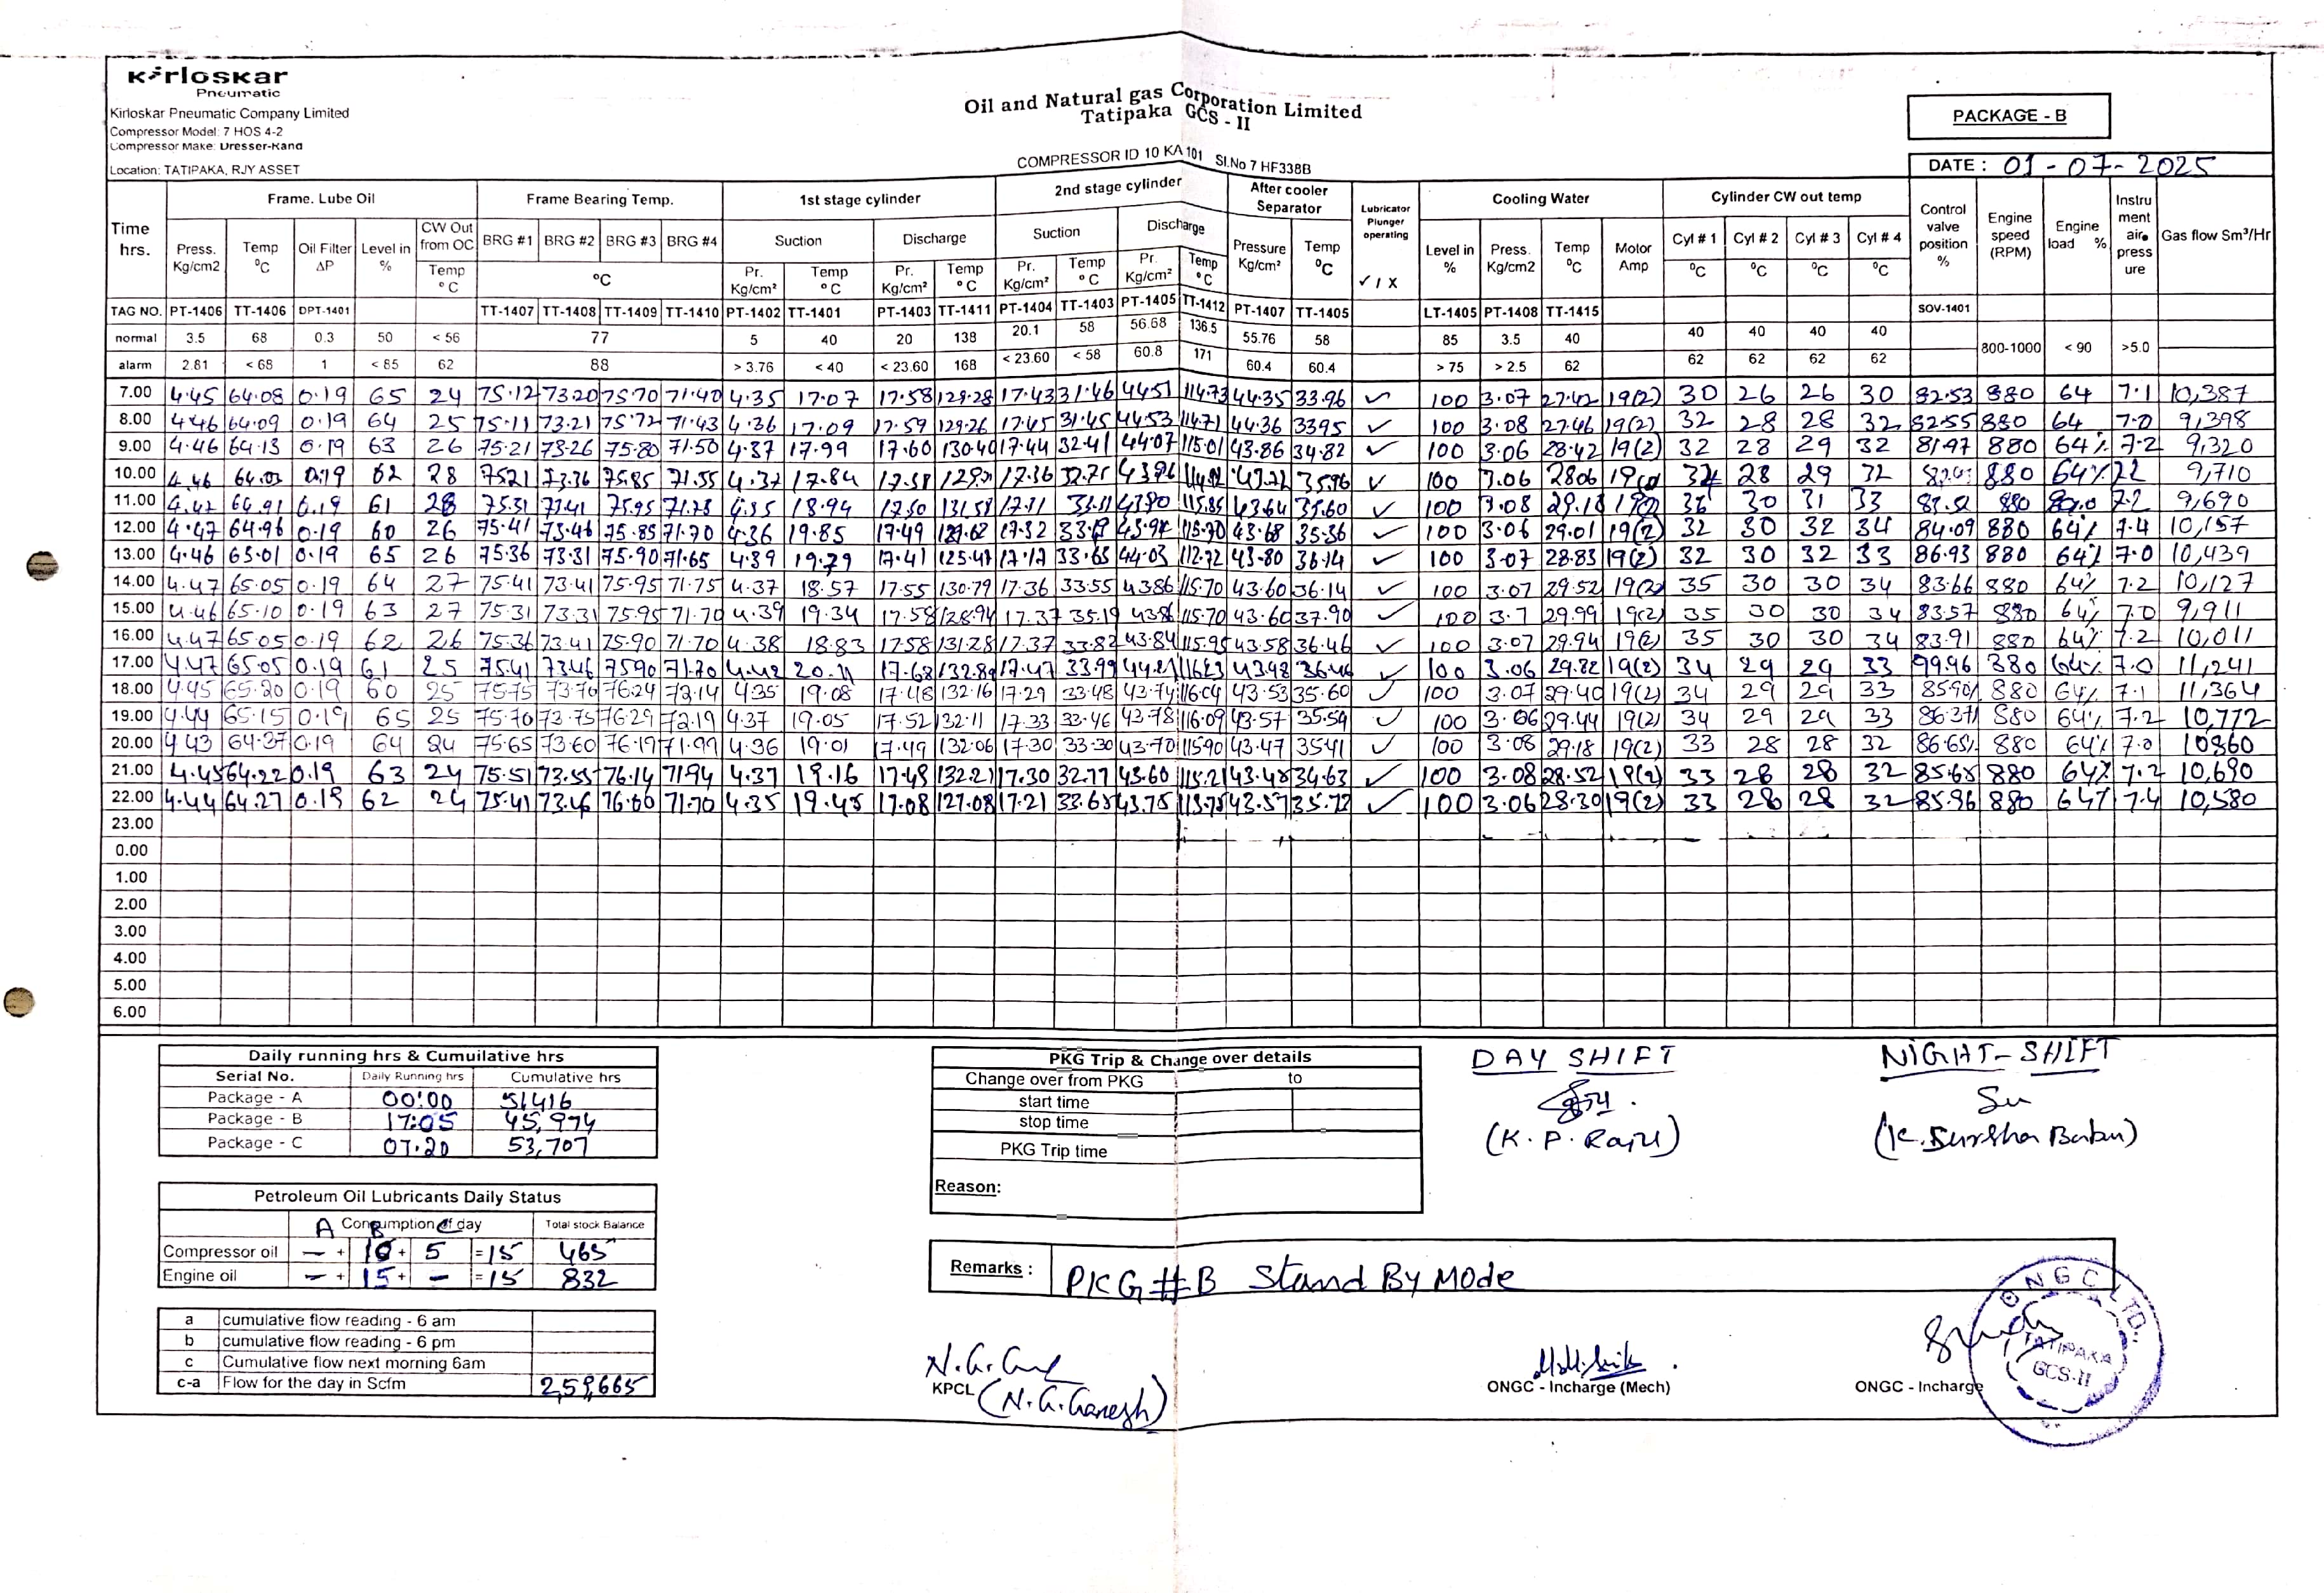 Kirloskar
Pneumatic
Kirloskar Pneumatic Company Limited
Compressor Model: 7 HOS 4-2
Compressor Make: Dresser-Rand
Location: TATIPAKA, RJY ASSET
Oil and Natural gas Corporation Limited
Tatipaka GCS - II
COMPRESSOR ID 10 KA 101 Sl.No 7 HF338B
PACKAGE - B
DATE : 01-07-2025
Time hrs. Frame. Lube Oil Frame Bearing Temp. 1st stage cylinder 2nd stage cylinder After cooler Separator Lubricator Plunger operating Cooling Water Cylinder CW out temp Control valve position % Engine speed (RPM) Engine load % Instru ment air press ure Gas flow Sm³/Hr
Press. Kg/cm2 Temp ⁰C Oil Filter ΔP Level in % CW Out from OC BRG #1 BRG #2 BRG #3 BRG #4 Suction Discharge Suction Discharge Pressure Kg/cm² Temp ⁰C Level in % Press. Kg/cm2 Temp ⁰C Motor Amp Cyl # 1 Cyl # 2 Cyl # 3 Cyl # 4
Temp ° C ⁰C Pr. Kg/cm² Temp ° C Pr. Kg/cm² Temp ° C Pr. Kg/cm² Temp ° C Pr. Kg/cm² Temp ° C ✓ / X ⁰C ⁰C ⁰C ⁰C
TAG NO. PT-1406 TT-1406 DPT-1401 TT-1407 TT-1408 TT-1409 TT-1410 PT-1402 TT-1401 PT-1403 TT-1411 PT-1404 TT-1403 PT-1405 TT-1412 PT-1407 TT-1405 LT-1405 PT-1408 TT-1415 SOV-1401
normal 3.5 68 0.3 50 < 56 77 5 40 20 138 20.1 58 56.68 136.5 55.76 58 85 3.5 40 40 40 40 40 800-1000 < 90 >5.0
alarm 2.81 < 68 1 < 85 62 88 > 3.76 < 40 < 23.60 168 < 23.60 < 58 60.8 171 60.4 60.4 > 75 > 2.5 62 62 62 62 62
7.00 4.45 64.08 0.19 65 24 75.12 73.20 75.70 71.40 4.35 17.07 17.58 129.28 17.43 31.46 44.51 114.73 44.35 33.96 ✓ 100 3.07 27.42 19(2) 30 26 26 30 82.53 880 64 7.1 10,387
8.00 4.46 64.09 0.19 64 25 75.11 73.21 75.72 71.43 4.36 17.09 17.59 129.26 17.45 31.45 44.53 114.71 44.36 33.95 ✓ 100 3.08 27.46 19(2) 32 28 28 32 82.55 880 64 7.0 9,398
9.00 4.46 64.13 0.19 63 26 75.21 73.26 75.80 71.50 4.37 17.99 17.60 130.40 17.44 32.41 44.07 115.01 43.86 34.82 ✓ 100 3.06 28.42 19(2) 32 28 29 32 81.47 880 64% 7.2 9,320
10.00 4.46 64.03 0.19 62 28 75.21 73.36 75.85 71.55 4.37 17.84 17.58 17.36 32.75 43.96 43.72 35.96 ✓ 100 3.06 28.06 28 29 32 880 64% 9,710
11.00 4.47 64.91 0.19 61 28 75.31 73.41 75.95 4.35 18.94 17.50 131.58 17.31 43.80 115.85 43.64 35.60 ✓ 100 3.08 29.18 36 30 31 33 880 7.2 9,690
12.00 4.47 64.96 0.19 60 26 75.41 73.46 75.85 71.70 4.36 19.85 17.49 17.32 43.92 115.70 43.68 35.36 ✓ 100 3.06 29.01 19(2) 32 30 32 34 84.09 880 64% 7.4 10,157
13.00 4.46 65.01 0.19 65 26 75.36 73.31 75.90 71.65 4.39 19.79 17.41 125.47 17.17 33.65 44.03 112.72 43.80 36.14 ✓ 100 3.07 28.83 19(2) 32 30 32 33 86.93 880 64% 7.0 10,439
14.00 4.47 65.05 0.19 64 27 75.41 73.41 75.95 71.75 4.37 18.57 17.55 130.79 17.36 33.55 43.86 115.70 43.60 36.14 ✓ 100 3.07 29.52 19(2) 35 30 30 34 83.66 880 64% 7.2 10,127
15.00 4.46 65.10 0.19 63 27 75.31 73.31 75.95 71.70 4.39 19.34 17.58 128.94 17.37 35.19 43.86 115.70 43.60 37.90 ✓ 100 3.7 29.99 19(2) 35 30 30 34 83.57 880 64% 7.0 9,911
16.00 4.47 65.05 0.19 62 26 75.36 73.41 75.90 71.70 4.38 18.83 17.58 131.28 17.37 33.82 43.84 115.95 43.58 36.46 ✓ 100 3.07 29.94 19(2) 35 30 30 34 83.91 880 64% 7.2 10,011
17.00 4.47 65.05 0.19 61 25 75.41 73.46 75.90 71.70 4.42 20.11 17.68 132.89 17.47 33.99 44.21 116.23 43.98 36.46 ✓ 100 3.06 29.82 19(2) 34 29 29 33 99.96 880 64% 7.0 11,241
18.00 4.45 65.20 0.19 60 25 75.75 73.70 76.24 72.14 4.35 19.08 17.48 132.16 17.29 33.48 43.74 116.04 43.53 35.60 ✓ 100 3.07 29.40 19(2) 34 29 29 33 85.90% 880 64% 7.1 11,364
19.00 4.44 65.15 0.19 65 25 75.70 73.75 76.29 72.19 4.37 19.05 17.52 132.11 17.33 33.46 43.78 116.09 43.57 35.54 ✓ 100 3.06 29.44 19(2) 34 29 29 33 86.37% 880 64% 7.2 10,772
20.00 4.43 64.37 0.19 64 24 75.65 73.60 76.19 71.99 4.36 19.01 17.49 132.06 17.30 33.30 43.70 115.90 43.47 35.41 ✓ 100 3.08 29.18 19(2) 33 28 28 32 86.65% 880 64% 7.0 10860
21.00 4.45 64.22 0.19 63 24 75.51 73.55 76.14 71.94 4.37 19.16 17.48 132.21 17.30 32.77 43.60 115.21 43.48 34.63 ✓ 100 3.08 28.52 19(2) 33 28 28 32 85.68 880 64% 7.2 10,690
22.00 4.44 64.27 0.19 62 24 75.41 73.46 76.00 71.70 4.35 19.45 17.08 127.08 17.21 33.68 43.75 113.75 43.57 35.72 ✓ 100 3.06 28.30 19(2) 33 28 28 32 85.96 880 64% 7.4 10,580
23.00
0.00
1.00
2.00
3.00
4.00
5.00
6.00
Daily running hrs & Cumuilative hrs
Serial No. Daily Running hrs Cumulative hrs
Package - A 00:00 51416
Package - B 17:05 45,974
Package - C 07.20 53,707
Petroleum Oil Lubricants Daily Status
A B C Consumption of day Total stock Balance
Compressor oil - + 10 + 5 = 15 465
Engine oil - + 15 + - = 15 832
a cumulative flow reading - 6 am
b cumulative flow reading - 6 pm
c Cumulative flow next morning 6am
c-a Flow for the day in Scfm 2,59,665
PKG Trip & Change over details
Change over from PKG to
start time
stop time
PKG Trip time
Reason:
DAY SHIFT
(K. P. Raju)
NIGHT-SHIFT
Su
(K. Suresha Babu)
Remarks : PKG#B Stand By Mode
KPCL
(N.G.Ganesh)
ONGC - Incharge (Mech)
ONGC - Incharge
ONGC LTD.,
TATIPAKA
GCS-II